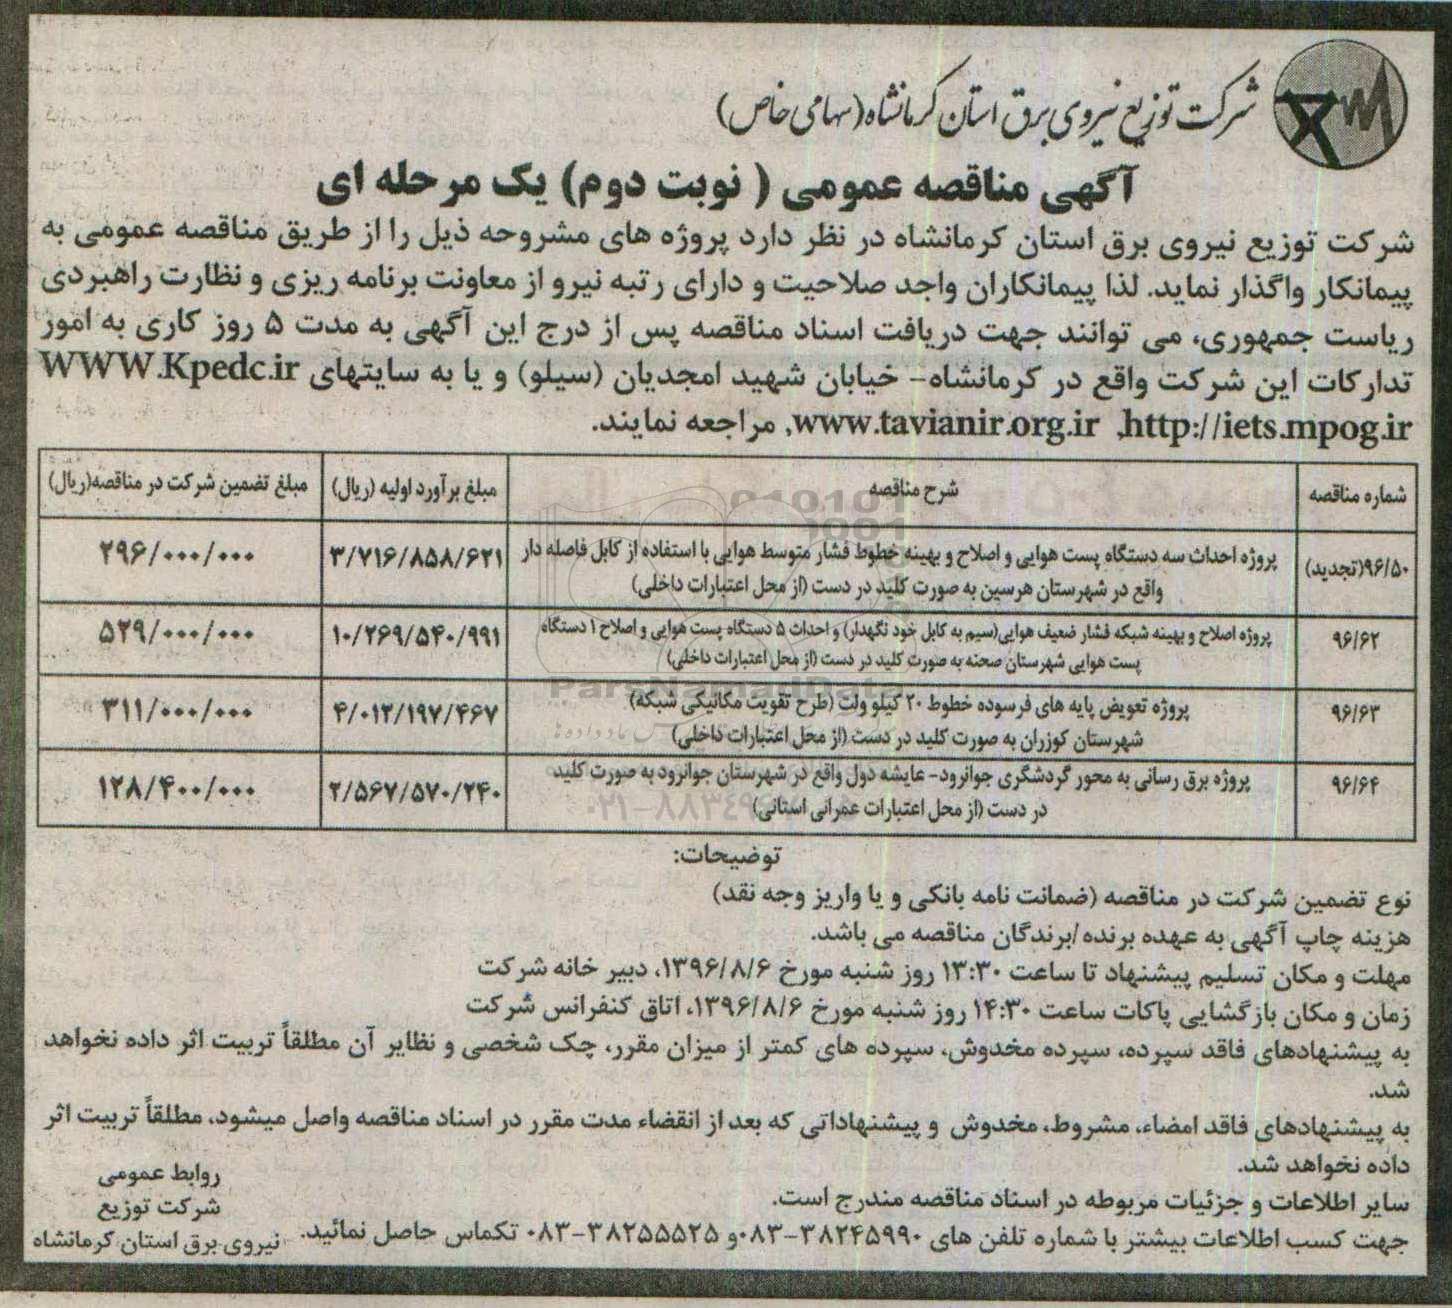 شرکت توزیع نیروی برق استان کرمانشاه (سهامی خاص)
آگهی مناقصه عمومی ( نوبت دوم) یک مرحله ای
شرکت توزیع نیروی برق استان کرمانشاه در نظر دارد پروژه های مشروحه ذیل را از طریق مناقصه عمومی به
پیمانکار واگذار نماید. لذا پیمانکاران واجد صلاحیت و دارای رتبه نیرو از معاونت برنامه ریزی و نظارت راهبردی
ریاست جمهوری، می توانند جهت دریافت اسناد مناقصه پس از درج این آگهی به مدت ۵ روز کاری به امور
تدارکات این شرکت واقع در کرمانشاه- خیابان شهید امجدیان (سیلو) و یا به سایتهای WWW.Kpedc.ir
www.tavianir.org.ir ,http://iets.mpog.ir, مراجعه نمایند.
شماره مناقصه | شرح مناقصه | مبلغ برآورد اولیه (ریال) | مبلغ تضمین شرکت در مناقصه(ریال)
۹۶/۵۰(تجدید) | پروژه احداث سه دستگاه پست هوایی و اصلاح و بهینه خطوط فشار متوسط هوایی با استفاده از کابل فاصله دار | ۳/۷۱۶/۸۵۸/۶۲۱ | ۲۹۶/۰۰۰/۰۰۰
واقع در شهرستان هرسین به صورت کلید در دست (از محل اعتبارات داخلی)
۹۶/۶۲ | پروژه اصلاح و بهینه شبکه فشار ضعیف هوایی(سیم به کابل خود نگهدار) و احداث ۵ دستگاه پست هوایی و اصلاح ۱ دستگاه | ۱۰/۲۶۹/۵۴۰/۹۹۱ | ۵۲۹/۰۰۰/۰۰۰
پست هوایی شهرستان صحنه به صورت کلید در دست (از محل اعتبارات داخلی)
۹۶/۶۳ | پروژه تعویض پایه های فرسوده خطوط ۲۰ کیلو ولت (طرح تقویت مکانیکی شبکه) | ۴/۰۱۲/۱۹۷/۴۶۷ | ۳۱۱/۰۰۰/۰۰۰
شهرستان کوزران به صورت کلید در دست (از محل اعتبارات داخلی)
۹۶/۶۴ | پروژه برق رسانی به محور گردشگری جوانرود- عایشه دول واقع در شهرستان جوانرود به صورت کلید | ۲/۵۶۷/۵۷۰/۲۴۰ | ۱۲۸/۴۰۰/۰۰۰
در دست (از محل اعتبارات عمرانی استانی)
ParsNamadData
توضیحات:
نوع تضمین شرکت در مناقصه (ضمانت نامه بانکی و یا واریز وجه نقد)
هزینه چاپ آگهی به عهده برنده/برندگان مناقصه می باشد.
مهلت و مکان تسلیم پیشنهاد تا ساعت ۱۳:۳۰ روز شنبه مورخ ۱۳۹۶/۸/۶، دبیر خانه شرکت
زمان و مکان بازگشایی پاکات ساعت ۱۴:۳۰ روز شنبه مورخ ۱۳۹۶/۸/۶، اتاق کنفرانس شرکت
به پیشنهادهای فاقد سپرده، سپرده مخدوش، سپرده های کمتر از میزان مقرر، چک شخصی و نظایر آن مطلقاً تربیت اثر داده نخواهد
شد.
به پیشنهادهای فاقد امضاء، مشروط، مخدوش و پیشنهاداتی که بعد از انقضاء مدت مقرر در اسناد مناقصه واصل میشود، مطلقاً تربیت اثر
داده نخواهد شد.
سایر اطلاعات و جزئیات مربوطه در اسناد مناقصه مندرج است.
جهت کسب اطلاعات بیشتر با شماره تلفن های ۳۸۲۴۵۹۹۰-۰۸۳ و ۳۸۲۵۵۵۲۵-۰۸۳ تکماس حاصل نمائید.
روابط عمومی
شرکت توزیع
نیروی برق استان کرمانشاه